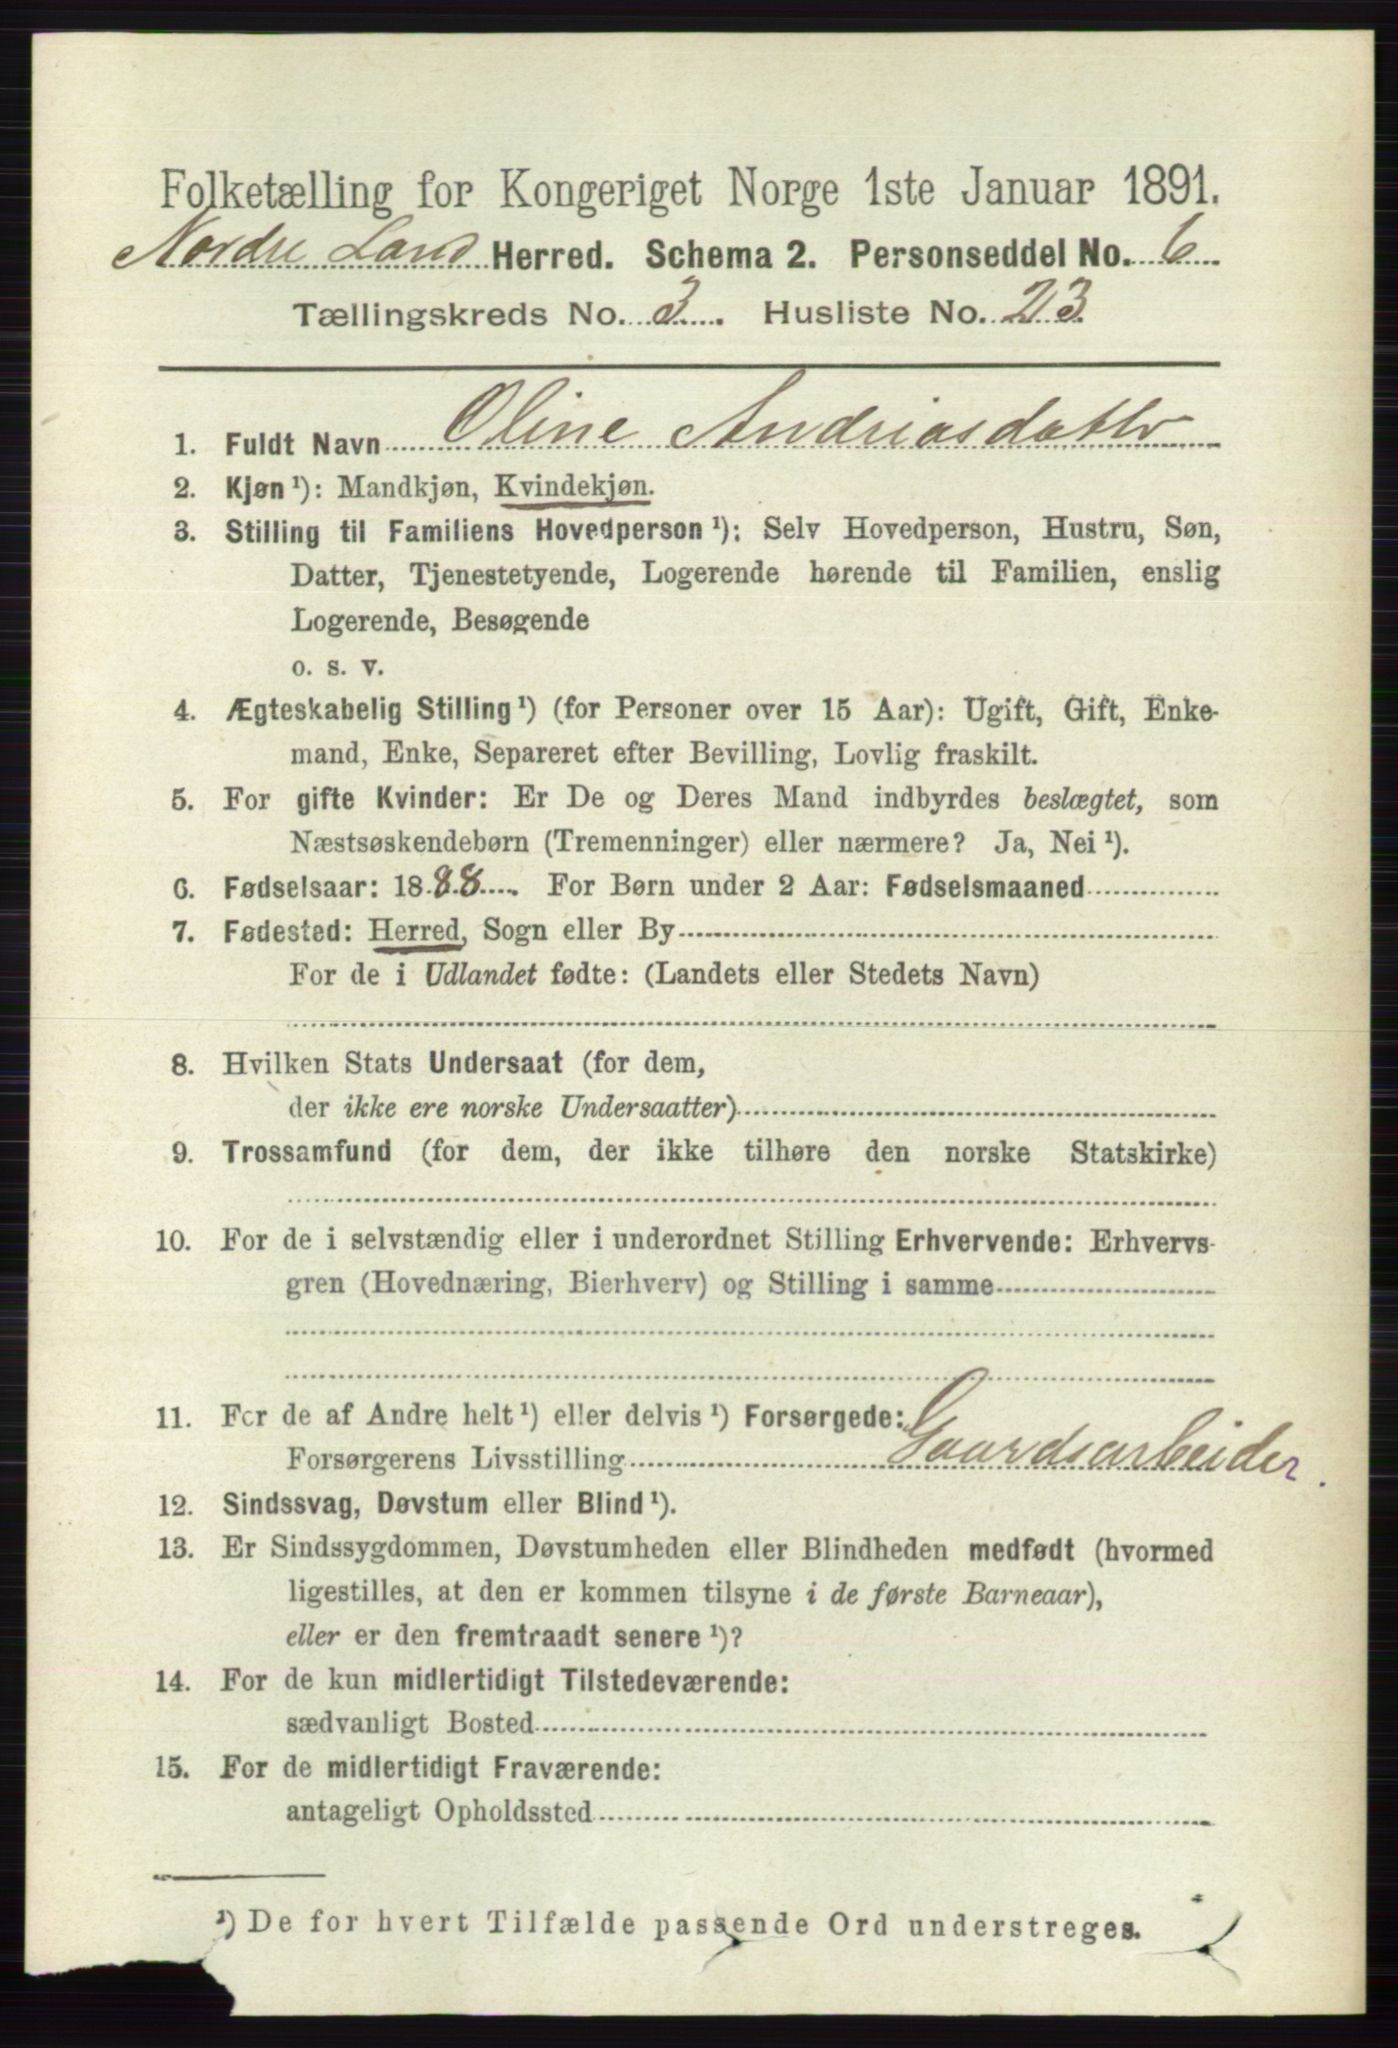 Folketælling for Kongeriget Norge 1ste Januar 1891.
Nordre Land Herred. Schema 2. Personseddel No. 6
Tællingskreds No. 3. Husliste No. 23
1. Fuldt Navn Oline Andriasdatter
2. Kjøn¹): Mandkjøn, Kvindekjøn.
3. Stilling til Familiens Hovedperson¹): Selv Hovedperson, Hustru, Søn,
Datter, Tjenestetyende, Logerende hørende til Familien, enslig
Logerende, Besøgende
o. s. v.
4. Ægteskabelig Stilling¹) (for Personer over 15 Aar): Ugift, Gift, Enke-
mand, Enke, Separeret efter Bevilling, Lovlig fraskilt.
5. For gifte Kvinder: Er De og Deres Mand indbyrdes beslægtet, som
Næstsøskendebørn (Tremenninger) eller nærmere? Ja, Nei¹).
6. Fødselsaar: 1888. For Børn under 2 Aar: Fødselsmaaned
7. Fødested: Herred, Sogn eller By
For de i Udlandet fødte: (Landets eller Stedets Navn)
8. Hvilken Stats Undersaat (for dem,
der ikke ere norske Undersaatter)
9. Trossamfund (for dem, der ikke tilhøre den norske Statskirke)
10. For de i selvstændig eller i underordnet Stilling Erhvervende: Erhvervs-
gren (Hovednæring, Bierhverv) og Stilling i samme
11. For de af Andre helt¹) eller delvis¹) Forsørgede:
Forsørgerens Livsstilling Gaardsarbeider.
12. Sindssvag, Døvstum eller Blind¹).
13. Er Sindssygdommen, Døvstumheden eller Blindheden medfødt (hvormed
ligestilles, at den er kommen tilsyne i de første Barneaar),
eller er den fremtraadt senere¹)?
14. For de kun midlertidigt Tilstedeværende:
sædvanligt Bosted
15. For de midlertidigt Fraværende:
antageligt Opholdssted
¹) De for hvert Tilfælde passende Ord understreges.